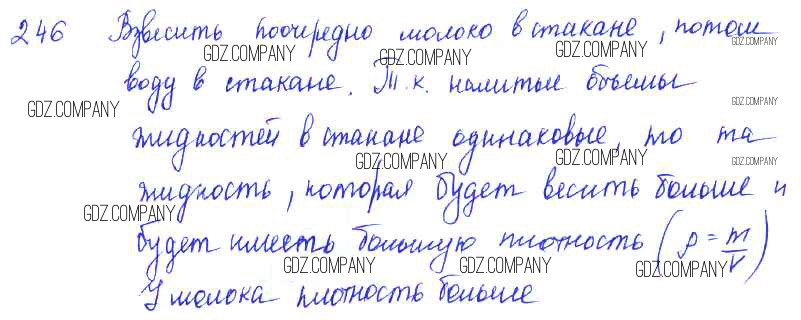 246 Взвесить поочередно молоко в стакане, потом
GDZ.COMPANY GDZ.COMPANY GDZ.COMPANY
воду в стакане. Т.к. налитые объемы
GDZ.COMPANY GDZ.COMPANY
жидкостей в стакане одинаковые, то та
GDZ.COMPANY GDZ.COMPANY GDZ.COMPANY
жидкость, которая будет весить больше и
GDZ.COMPANY
будет иметь большую плотность (ρ = m/V)
GDZ.COMPANY GDZ.COMPANY GDZ.COMPANY
У молока плотность больше